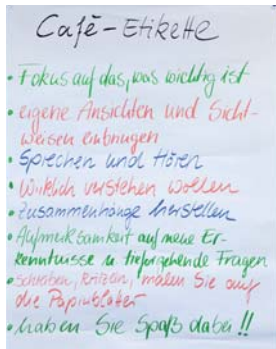 Café-Etikette
• Fokus auf das, was wichtig ist
• eigene Ansichten und Sicht-
weisen einbringen
• Sprechen und Hören
• Wirklich verstehen wollen
• Zusammenhänge herstellen
• Aufmerksamkeit auf neue Er-
kenntnisse u tiefergehende Fragen
• Schreiben, kritzeln, malen Sie auf
die Papierblätter
• haben Sie Spaß dabei!!